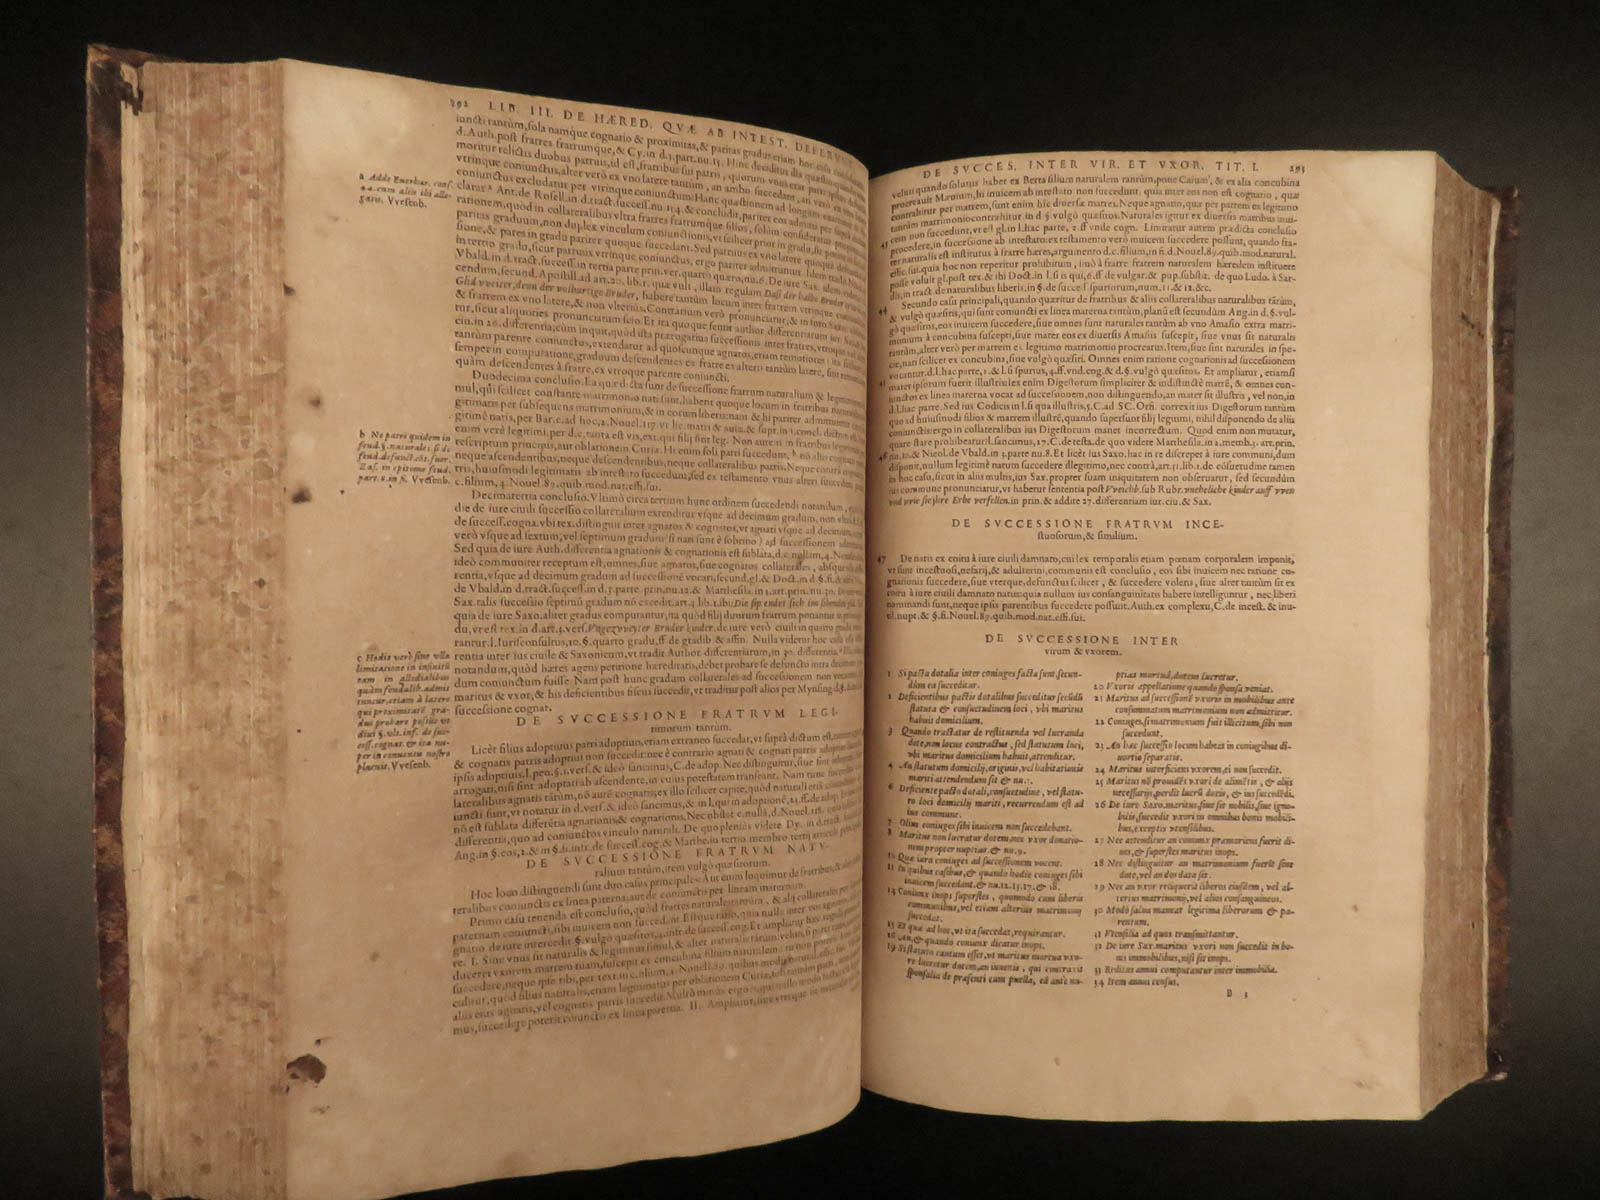 292 LIB. III. DE HÆRED. QVÆ AB INTEST. DEFERVNT
iuncti tantùm, sola namque cognatio & proximitas, & paritas gradus etiam hoc
d. Auth. post fratres fratrumque, & Cy. in d. 3. part. nu. 15. Hinc deciditur
moritur relictis duobus patruis, id est, fratribus sui patris, quorum vnus erat
vtrinque coniunctus, alter verò ex vno latere tantùm, an ambo succedant, an verò ex vno
coniunctus excludatur per vtrinque coniunctum? Hanc quæstionem ad longum
clarat Ant. de Rosell. in d. tract. success. nu. 114. & concludit, pariter eos admitti
rationem, quòd in collateralibus vltra fratres fratrumque filios, solùm consideratur
paritas graduum, non duplex vinculum coniunctionis, vt scilicet prior in gradu, sit
sione, & pares in gradu pariter quoque succedant. Sed patruus ex vno latere
in tertio gradu, sicut patruus vtrinque coniunctus, ergo pariter admittuntur. Idem
Vbald. in d. tract. success. in tertia parte prin. ver. quarto quæro, nu. 6. De iure Sax. idem
cendum, secund. Apostill. ad art. 20. lib. 1. quæ vult, illam regulam Daß der halbe Bruder
Glid weiter, denn der volburtige Bruder, habere tantùm locum inter fratrem vtrinque
& fratrem ex vno latere, & non vlterius. Contrarium verò pronunciatur, & in foro Saxo.
tur, sicut aliquories pronunciatum scio. Et ita quoque sentit author differentiarum iur.
ciu. in 26. differentia, cùm inquit, quòd ista prærogatiua successionis inter fratres, vtrinque
tantùm parente coniunctos, extendatur ad quoscunque agnatos, etiam remotiores
semper in computatione, graduum descendentes ex fratre ex altero tantùm latere,
quàm descendentes à fratre, ex vtroque parente coniuncti.
Duodecima conclusio. Ea quæ dicta sunt de successione fratrum naturalium & legitimorum
mul, qui scilicet constante matrimonio nati sunt, habent quoque locum in fratribus
gitimatis per subsequens matrimonium, & in eorum liberis: nam & hi pariter admittuntur
gitimè natis, per Bar. c. ad hoc, 2. Nouel. 117. vt lic. matri & auiæ, & supr. in 1. concl. dictum est,
enim verè legitimi, per d. c. tanta est vis, ext. qui filij sint leg. Non autem in fratribus
rescriptum principis, aut oblationem Curiæ: Hi enim soli patri succedunt, b nò alijs
neque ascendentibus, neque descendentibus, neque collateralibus patris. Neque contrà
tris, huiusmodi legitimatis ab intestato succedunt, sed ex testamento vnus alteri
c. filium, 4. Nouel. 89. quib. mod. nat. effi. sui.
Decimatertia conclusio. Vltimò circa tertium hunc ordinem succedendi notandum,
die de iure ciuili successio collateralium extenditur vsque ad decimum gradum,
de success. cogna. vbi tex. distinguit inter agnatos & cognatos, vt agnati vsque ad decimum,
verò vsque ad sextum, vel septimum gradum (si nati sunt è sobrino) ad successionem
Sed quia de iure Auth. differentia agnationis & cognationis est sublata, d. c. nullam, 4.
ideò communiter receptum est, omnes, siue agnatos, siue cognatos collaterales, absque
rentia, vsque ad decimum gradum ad successionē vocari, secund. gl. & Doct. in d. §. fi.
de Vbald. in d. tract. success. in d. 3. parte prin. nu. 12. & Marthesila. in 3. art. prin. nu. 30.
Sax. talis successio septimū gradum nō excedit. art. 3. lib. 1. ibi: Die sip endet sich im sibenden
quia de iure Saxo. aliter gradus computantur, ita quòd filij duorum fratrum ponantur in
du, vt est tex. in d. art. 3. vers. Ungezweyter Bruder kinder, de iure verò ciuili in quarto
rantur. l. Iurisconsultus, 10. §. quarto gradu, ff. de gradib. & affin. Nulla videtur hoc casu
rentia inter ius ciuile & Saxonicum, vt tradit Author differentiarum, in 30. differentia.
notandum, quòd hæres agens petitione hæreditatis, debet probare se defuncto intra decimum
dum coniunctum fuisse. Nam post hunc gradum collaterales ad successionem non
maritus & vxor, & his deficientibus fiscus succedit, vt traditur post alios per Mynsing.
successione cognat.
DE SVCCESSIONE FRATRVM LEGI-
timorum tantùm.
Licèt filius adoptiuus patri adoptiuo, etiam extraneo succedat, vt suprà dictum est,
& cognatis patris adoptiui non succedit: nec è contrario agnati & cognati patris adoptiui
ipsis adoptiuis, l. pen. §. 1. vers. & ideò sancimus, C. de adop. Nec distinguitur, siue sint
arrogati, nisi sint adoptati ab ascendente, in cuius potestatem transeant. Nam tunc
lateralibus agnatis tātùm, nō autē cognatis, ex illo scilicet capite, quòd naturali
iuncti sunt, vt notatur in d. vers. & ideò sancimus, & in l. qui in adoptionē, 23. ff. de adop.
nō est sublata differētia agnationis, & cognationis. Nec obstat c. nullā, d. Nouel. 118.
differentia, quo ad coniunctos vinculo naturali. De quo plenius videte Dy. in d. tract.
Ang. in §. eos, 2. & in §. fi. insti. de success. cog. & Marthe. in tertio membro tertij
DE SVCCESSIONE FRATRVM NATV-
ralium tantùm, item vulgò quæsitorum.
Hoc loco distinguendi sunt duo casus principales: Aut enim loquimur de fratribus, &
teralibus coniunctis ex linea paterna, aut de coniunctis per lineam maternam.
Primo casu tenenda est conclusio, quòd fratres naturales tantùm, & alij collaterales
paternam coniuncti, sibi inuicem non succedunt. Estque ratio, quia nulla inter eos
gnatio de iure intercedit. §. vulgò quæsitos, 4. instit. de success. cog. Et ampliatur hæc regula
re. I. Siue vnus sit naturalis & legitimus simul, & alter naturalis tātùm, veluti, si pater
duceret vxorem matrem tuam, suscepit ex concubina filium naturalem: tu non poteris
succedere, neque ipse tibi, per text. in c. filium, 4. Nouel. 89. quibus modis natural. effic.
caditur, quòd filius naturalis, etiam legitimatus per oblationem Curiæ, tali
alijs eius agnatis, vel cognatis patris succedit. Multò minùs ergo is, qui nullo modo
mus, succedere poterit coiunctis ex linea paterna. II. Ampliatur, siue vterque sit
a Adde Euerhar. cons.
44. cum alijs ibi alle-
gatis. Vvesenb.
b Ne patri quidem in
feud. §. naturales. si de
feud. defunct. cōt. fuer.
Zas. in epitome feud.
part. 8. in fi. Vvesenb.
c Hodie verò sine vlla
limitatione in infinitū
tam in allodialibus
quàm feudalib. admit
tuntur, etiam à latere
qui proximitatē gra-
dus probare possūt vt
dixi §. vlt. inf. de suc-
cess. cognat. & ita nu-
per in conuentu nostro
placuit. Vvesenb.
DE SVCCES. INTER VIR. ET VXOR. TIT. I. 293
veluti quando solutus habet ex Berta filium naturalem tantùm, pone Caium, & ex alia concubina
procreauit Mæuium, hi inuicem ab intestato non succedunt, quia inter eos non est cognatio, quæ
contrahitur per matrem, sunt enim hîc diuersæ matres. Neque agnatio, quæ per patrem ex legitimo
tantùm matrimonio contrahitur in d. §. vulgò quæsitos. Naturales igitur ex diuersis matribus inui-
43 cem non succedunt, vt est gl. in l. hac parte, 2. ff. vnde cogn. Limitatur autem prædicta conclusio
procedere, in successione ab intestato: ex testamento verò inuicem succedere possunt, quando fra-
ter naturalis est institutus à fratre hæres, argumento d. c. filium, in fi. d. Nouel. 89. quib. mod. natural.
effic. sui. quia hoc non reperitur prohibitum, imò à fratre fratrem naturalem hæredem instituere
posse voluit gl. post tex. & ibi Doct. in l. si is qui, 6. ff. de vulgar. & pup. substit. de quo Ludo. à Sar-
dis, in tract. de naturalibus liberis, in §. de success. spuriorum, num. 11. & 12. &c.
44 Secundo casu principali, quando quæritur de fratribus & aliis collateralibus naturalibus tātùm,
& vulgò quæsitis, qui sunt coniuncti ex linea materna tantùm, planū est secundùm Ang. in d. §. vul-
gò quæsitos, eos inuicem succedere, siue omnes sunt naturales tantùm ab vno Amasio extra matri-
monium à concubina suscepti, siue mater eos ex diuersis Amasiis suscepit, siue vnus sit naturalis
tantùm, alter verò per matrem ex legitimo matrimonio procreatus. Item, siue sint naturales in spe-
cie, nati scilicet ex concubina, siue vulgò quæsiti. Omnes enim ratione cognationis ad successionem
vocantur. d. l. hac parte, 2. & l. si spurius, 4. ff. vnd. cog. & d. §. vulgò quæsitos. Et ampliatur, etiamsi
45 mater ipsorum fuerit illustris: ius enim Digestorum simpliciter & indistinctè matrē, & omnes con-
iunctos ex linea materna vocat ad successionem, non distinguendo, an mater sit illustris, vel non, in
d. l. hac parte. Sed ius Codicis in l. si qua illustris, 5. C. ad SC. Orfi. correxit ius Digestorum tantùm
quo ad huiusmodi filios & matrem illustrē, quando supersunt filij legitimi, nihil disponendo de aliis
coniunctis: ergo in collateralibus ius Digestorum manet incorrectum. Quod enim non mutatur,
quare stare prohibeatur? l. sancimus, 27. C. de testa. de quo videre Marthesila. in 2. memb. 3. art. prin.
46 nu. 10. & Nicol. de Vbald. in 3. parte nu. 8. Et licèt ius Saxo. hac in re discrepet à iure communi, dum
disponit, nullum legitimè natum succedere illegitimo, nec contrà, art. 51. lib. 1. de cōsuetudine tamen
in hoc casu, sicut in aliis multis, ius Sax. propter suam iniquitatem non obseruatur, sed secundùm
ius commune pronunciatur, vt habetur sententia post Vveichb. sub Rubr. vneheliche kinder auff wen
vnd wie sie jhre Erbe verfellen. in prin. & addite 27. differentiam iur. ciu. & Sax.
DE SVCCESSIONE FRATRVM INCE-
stuosorum, & similium.
47 De natis ex coitu à iure ciuili damnato, cui lex temporalis etiam pœnam corporalem imponit,
vt sunt incestuosi, nefarij, & adulterini, communis est conclusio, eos sibi inuicem nec ratione co-
gnationis succedere, siue vterque, defunctus scilicet, & succedere volens, siue alter tantùm sit ex
coitu à iure ciuili damnato natus: quia nullum ius consanguinitatis habere intelliguntur, nec liberi
nominandi sunt, neque ipsis parentibus succedere possunt. Auth. ex complexu, C. de incest. & inu-
til. nupt. & §. fi. Nouel. 89. quib. mod. nat. effi. sui.
DE SVCCESSIONE INTER
virum & vxorem.
1 Si pacta dotalia inter coniuges facta sunt, secun-
dùm ea succeditur.
2 Deficientibus pactis dotalibus succeditur secūdū
statuta & consuetudinem loci, vbi maritus
habuit domicilium.
3 Quando tractatur de restituenda vel lucranda
dote, non locus contractus, sed statutum loci,
vbi maritus domicilium habuit, attenditur.
4 An statutum domicilij, originis, vel habitationis
mariti attendendum sit & nu. 5.
6 Deficiente pacto dotali, consuetudine, vel statu-
to loci domicilij mariti, recurrendum est ad
ius commune.
7 Olim coniuges sibi inuicem non succedebant.
8 Maritus non lucratur dotem, nec vxor donatio-
nem propter nuptias & nu. 9.
10 Quæ iura coniuges ad successionem vocent.
11 In quibus casibus, & quando hodie coniuges sibi
inuicem succedant. & nu. 12. 13. 17. & 18.
14 Coniunx inops superstes, quomodo cum liberis
communibus, vel etiam alterius matrimonij
succedat.
15 Et quæ ad hoc, vt ita succedat, requirantur.
16 An, & quando coniunx dicatur inops.
19 Si statuto cautum esset, vt maritus mortua vxo-
re lucretur dotem, an inuenis, qui contraxit
sponsalia de præsenti cum puella, ea ante nu-
ptias mortua, dotem lucretur.
20 Vxoris appellatione quando sponsa veniat.
21 Maritus ad successionē vxoris in mobilibus ante
consummatum matrimonium non admittitur.
22 Coniuges, si matrimonium fuit illicitum, sibi non
succedunt.
23 An hæc successio locum habeat in coniugibus di-
uortio separatis.
24 Maritus interficiens vxorem, ei non succedit.
25 Maritus nō prouidēs vxori de alimētis, & alijs
necessarijs, perdit lucrū dotis, & ius succedēdi.
26 De iure Saxo. maritus, siue sit nobilis, siue igno-
bilis, succedit vxori in omnibus bonis mobili-
bus, exceptis vtensilibus.
27 Nec attenditur an coniunx præmoriens fuerit di-
ues, & superstes maritus inops.
28 Nec distinguitur an matrimonium fuerit sine
dote, vel an dos data sit.
29 Nec an vxor reliquerit liberos eiusdem, vel al-
terius matrimonij, vel alios consanguineos.
30 Modò salua maneat legitima liberorum & pa-
rentum.
31 Vtensilia ad quos transmittantur.
32 De iure Sax. maritus vxori non succedit in bo-
nis immobilibus, nisi sit inops.
33 Reditus annui computantur inter immobilia.
34 Item annui census.
B 3